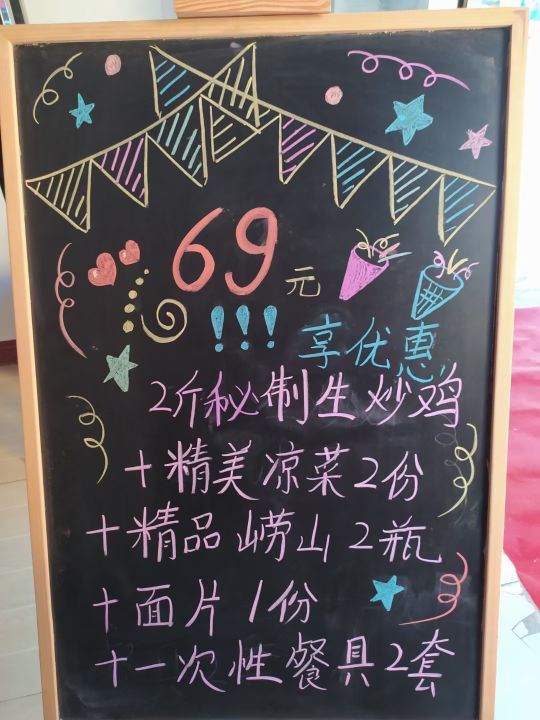 69元
!!!享优惠
2斤秘制生炒鸡
+精美凉菜2份
+精品崂山2瓶
+面片1份
+一次性餐具2套